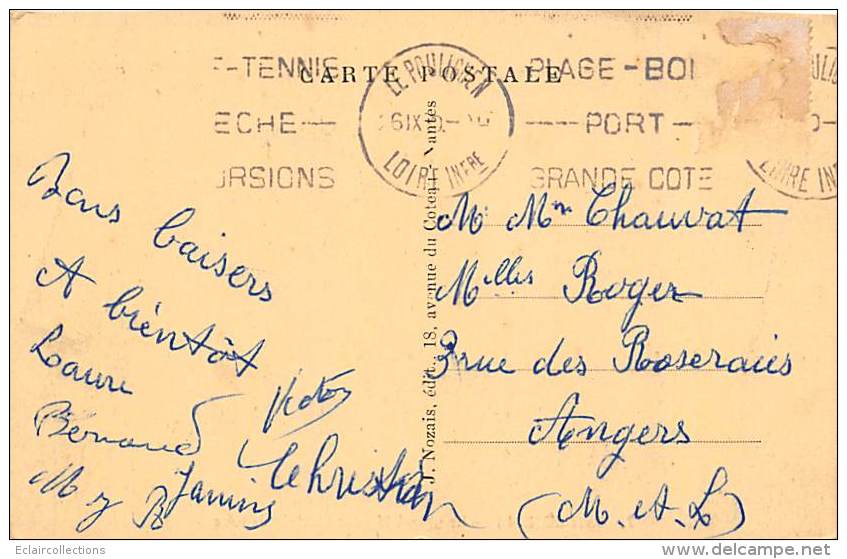 CARTE POSTALE
F-TENNIS
ECHE
URSIONS
LE POULIGUEN
LOIRE INFRE
PLAGE-BOI
PORT
GRANDE COTE
LOIRE IN
J. Nozais, édit., 18, avenue du Coteau - Nantes
Bons baisers
A bientôt
Laure
Victor
Bernard
Christian
Janine
M y B
Mr Mm Chauvat
Melles Roger
3 rue des Roseraies
Angers
(M. et. L)
©Eclaircollections
http://www.delcampe.net